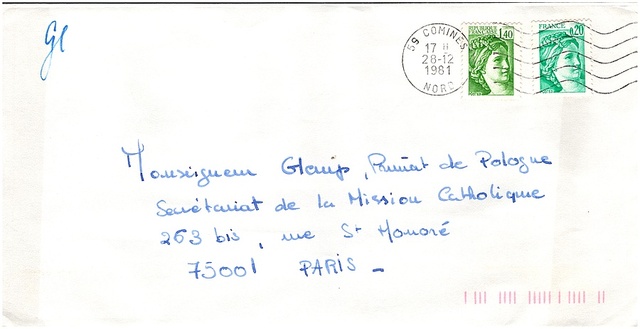 Gl
59 COMINES
17 H
28-12
1981
NORD
REPUBLIQUE FRANCAISE
1,40
FRANCE
0,20
Monseigneur Glemp, Primat de Pologne
Secrétariat de la Mission Catholique
263 bis, rue St Honoré
75001 PARIS -